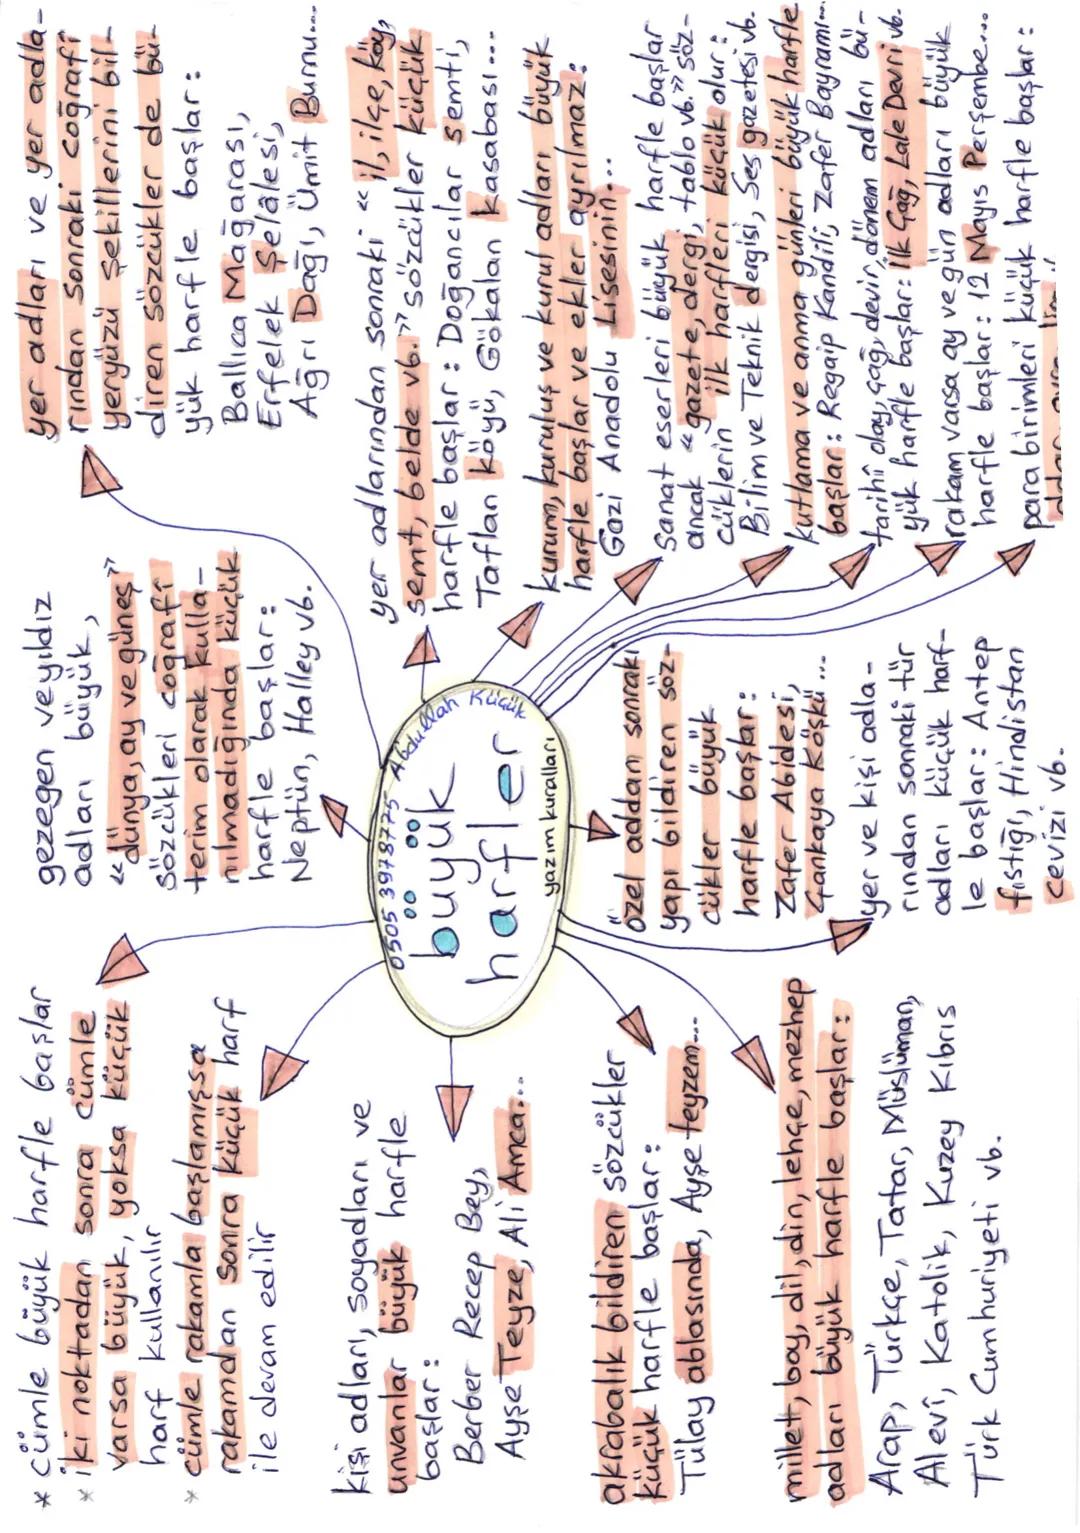 * cümle büyük harfle başlar
* iki noktadan sonra cümle
varsa büyük, yoksa küçük
harf kullanılır
* cümle rakamla başlamışsa
rakamdan sonra küçük harf
ile devam edilir
gezegen ve yıldız
adları büyük,
“dünya, ay ve güneş”
sözcükleri coğrafi
terim olarak kulla-
nılmadığında küçük
harfle başlar:
Neptün, Halley vb.
yer adları ve yer adla-
rından sonraki coğrafî
yeryüzü şekillerini bil-
diren sözcükler de bü-
yük harfle başlar:
Ballıca Mağarası,
Erfelek Şelâlesi,
Ağrı Dağı, Ümit Burnu...
kişi adları, soyadları ve
unvanlar büyük harfle
başlar:
Berber Recep Bey,
Ayşe Teyze, Ali Amca...
0505 3978775- Abdullah Küçük
büyük
harfler
yazım kuralları
yer adlarından sonraki “il, ilçe, köy,
semt, belde vb.” sözcükler küçük
harfle başlar: Doğancılar semti,
Taflan köyü, Gökalan kasabası...
kurum, kuruluş ve kurul adları büyük
harfle başlar ve ekler ayrılmaz:
Gazi Anadolu Lisesinin...
sanat eserleri büyük harfle başlar
ancak “gazete, dergi, tablo vb.” söz-
cüklerin ilk harfleri küçük olur:
Bilim ve Teknik dergisi, Ses gazetesi vb.
kutlama ve anma günleri büyük harfle
başlar: Regaip Kandili, Zafer Bayramı...
tarihî olay, çağ, devir, dönem adları bü-
yük harfle başlar: İlk Çağ, Lale Devri vb.
rakam varsa ay ve gün adları büyük
harfle başlar: 12 Mayıs Perşembe...
para birimleri küçük harfle başlar:
akrabalık bildiren sözcükler
küçük harfle başlar:
Tülay ablasında, Ayşe teyzem...
millet, boy, dil, din, lehçe, mezhep
adları büyük harfle başlar:
Arap, Türkçe, Tatar, Müslüman,
Alevî, Katolik, Kuzey Kıbrıs
Türk Cumhuriyeti vb.
özel addan sonraki
yapı bildiren söz-
cükler büyük
harfle başlar:
Zafer Abidesi,
Çankaya Köşkü...
yer ve kişi adla-
rından sonraki tür
adları küçük harf-
le başlar: Antep
fıstığı, Hindistan
cevizi vb.